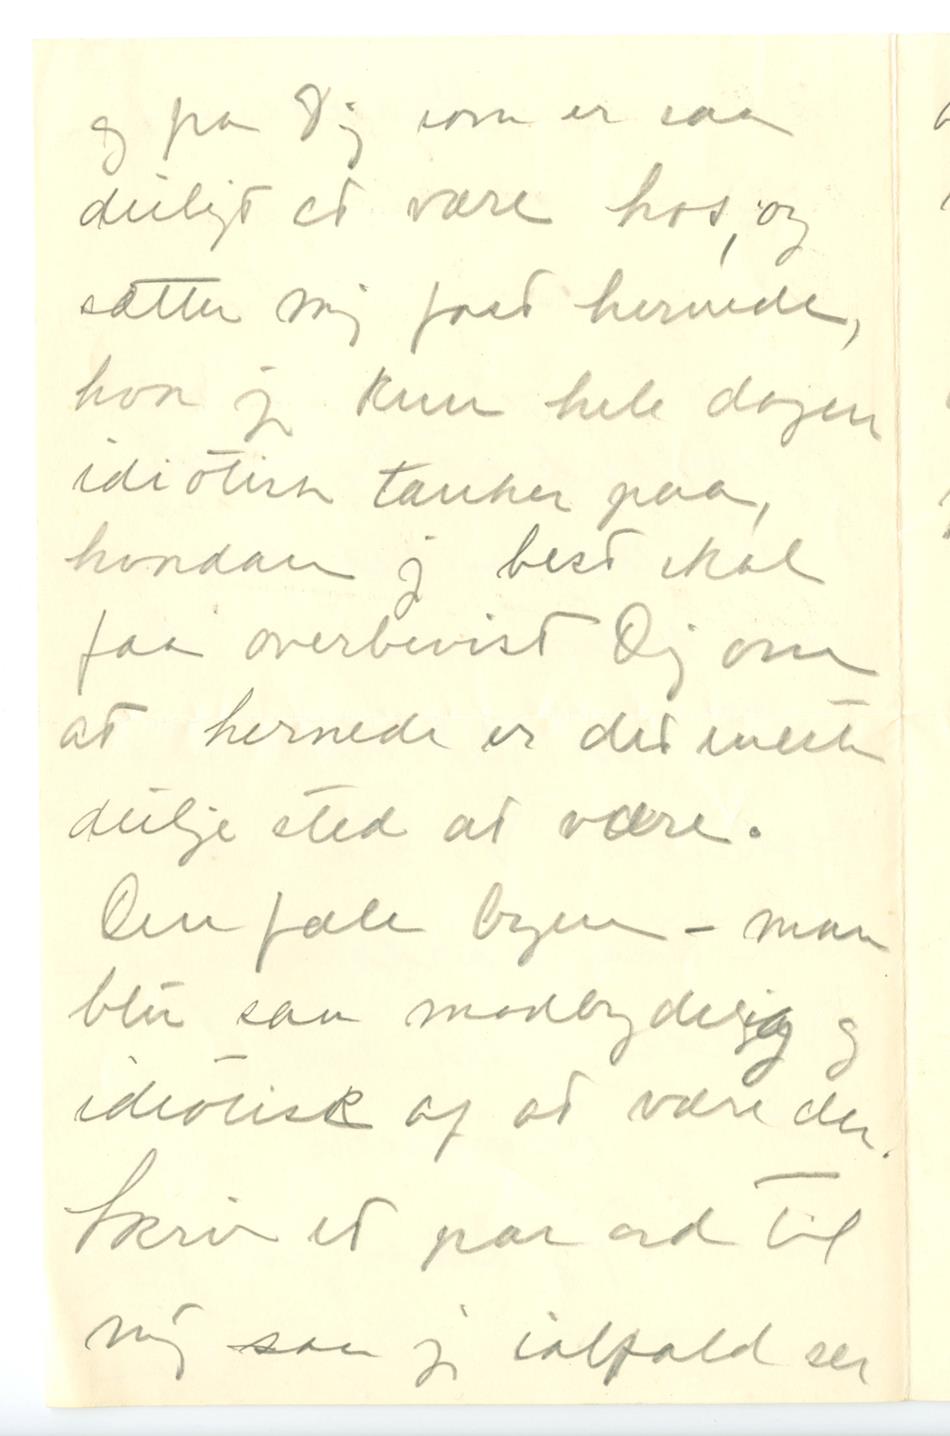 og paa Dig som er saa
deiligt at være hos, og
sætter mig fast hernede,
hvor jeg kun hele dagen
idiotisk tænker paa,
hvordan jeg best skal
faa overbevist Dig om
at hernede er det eneste
deilige sted at være.
Den fæle byen – man
blir saa modbydelig og
idiotisk af at være der.
Skriv et par ord til
mig saa jeg ialfald ser